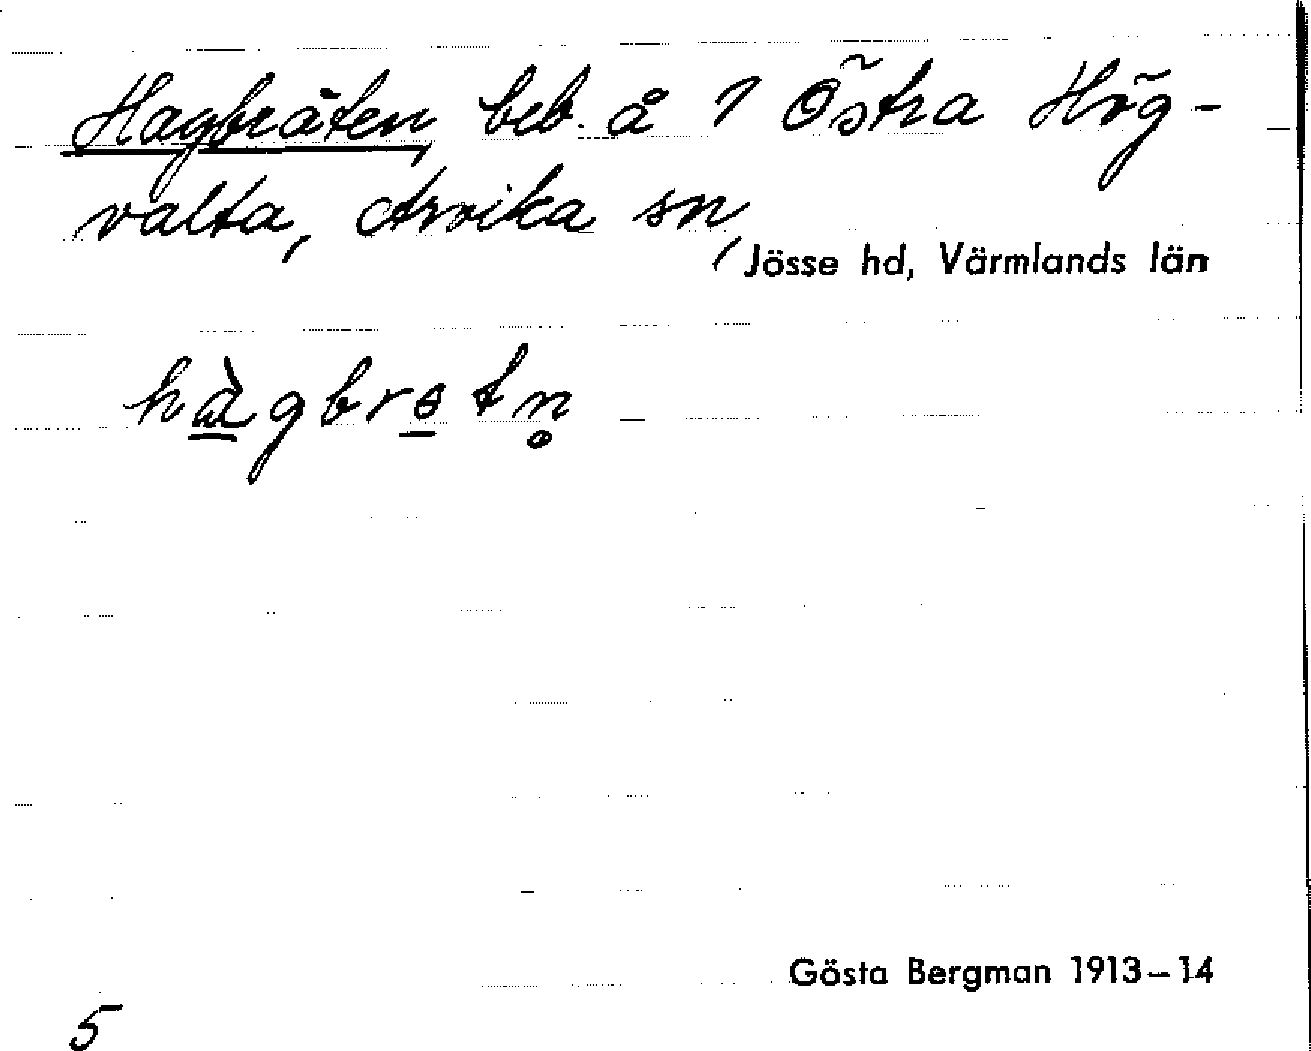 Hagbråten, beb. å 1 Östra Hög-
valta, Arvika sn,
Jösse hd, Värmlands län
hàgbrɵtn̥
Gösta Bergman 1913–14
5